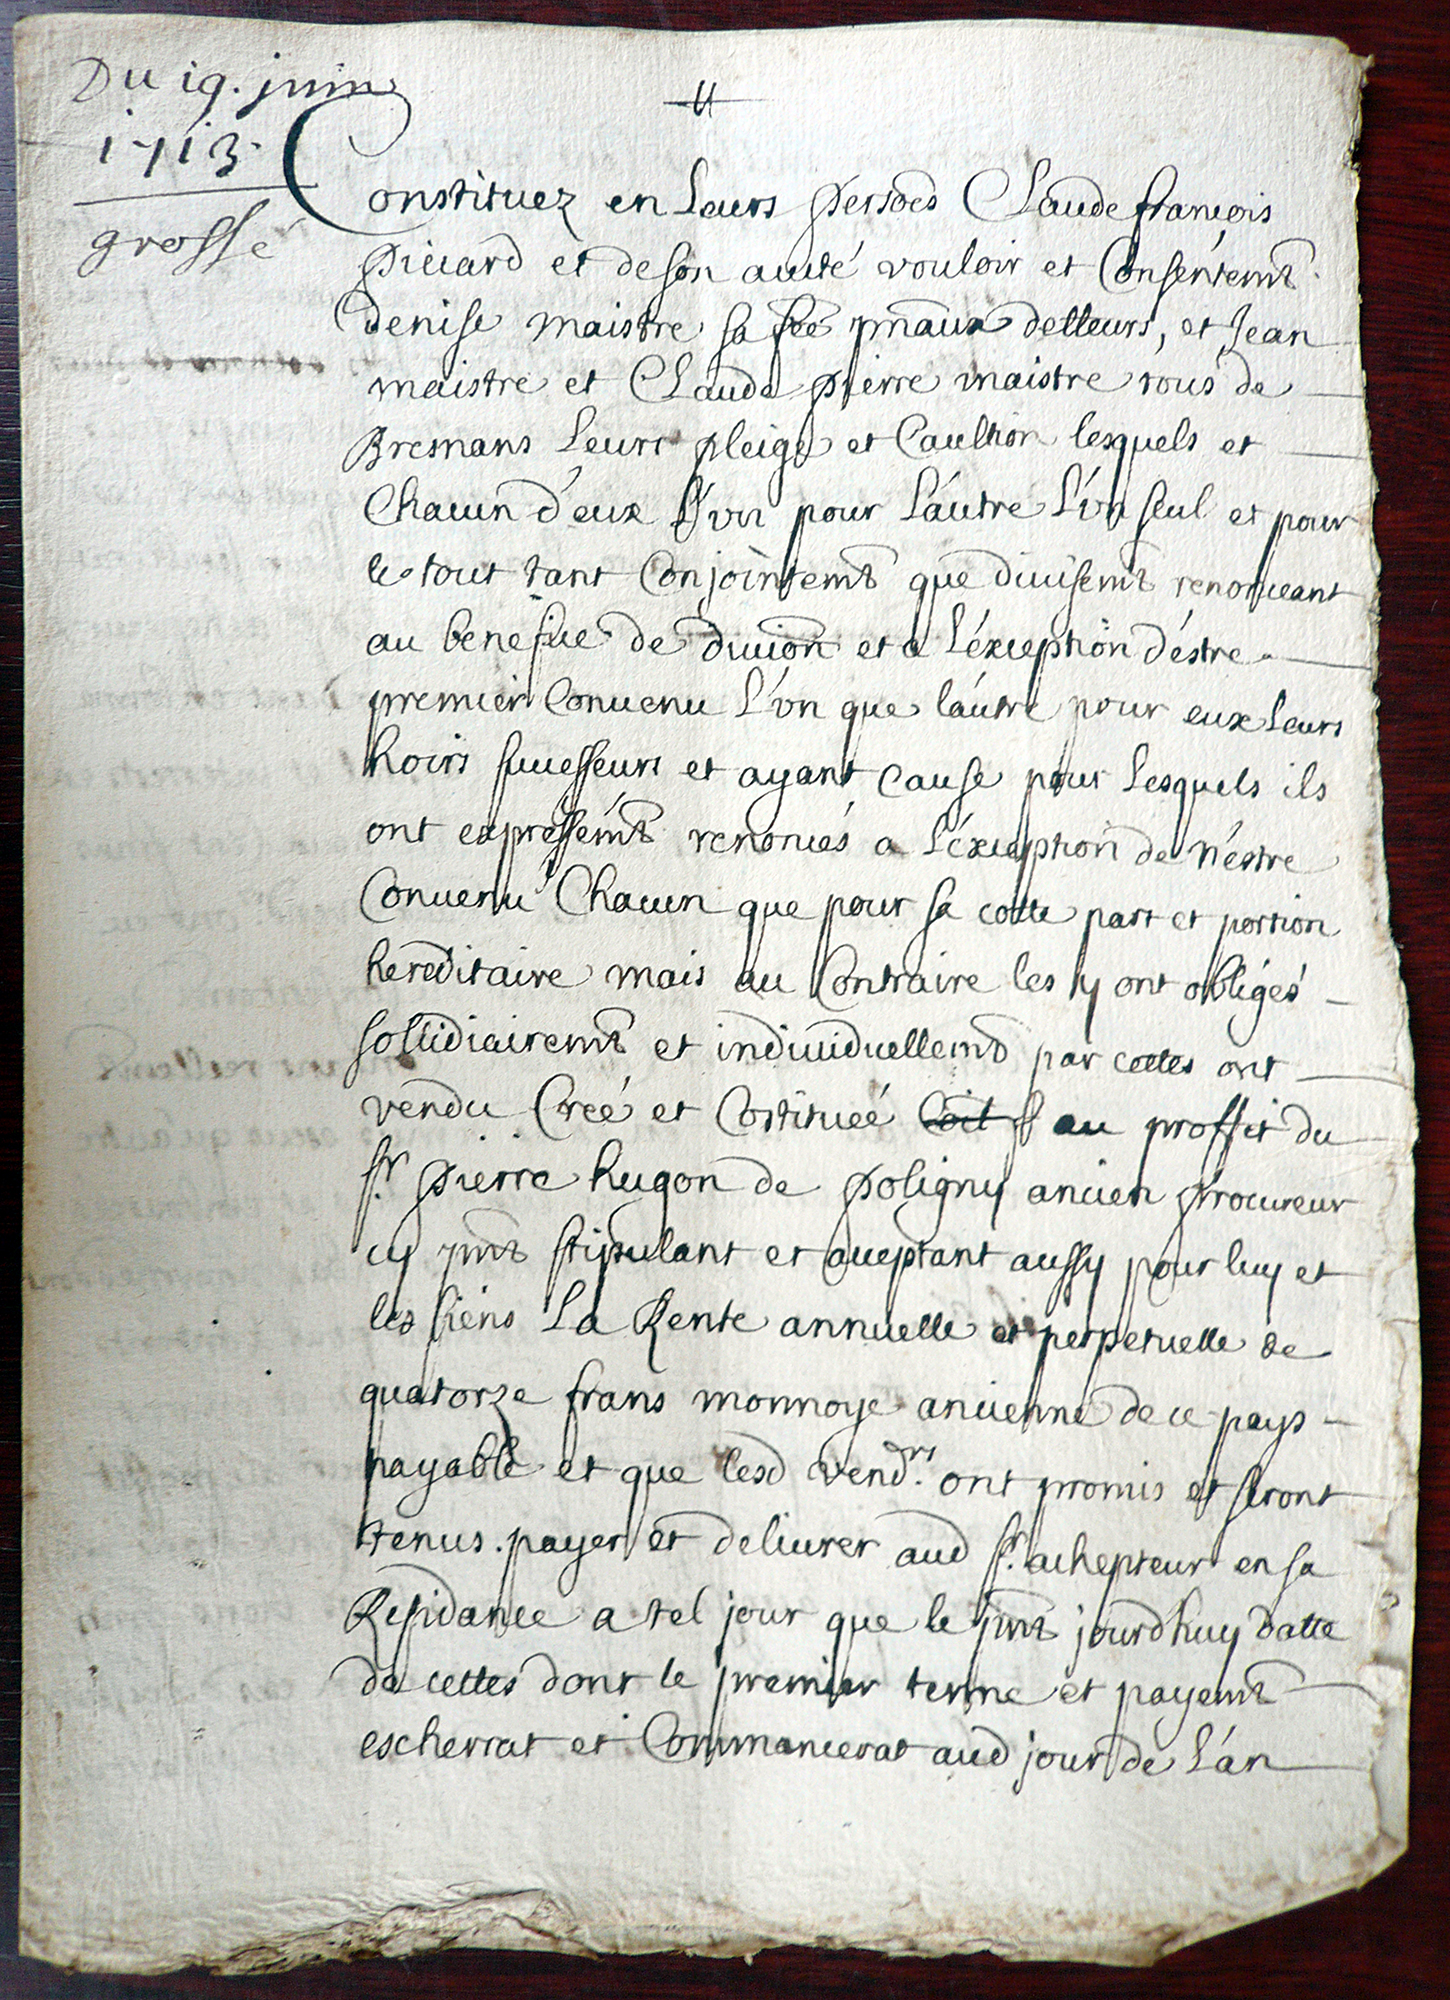 Du 19. juin
1713.
grossé
Constituez en Leurs persoēs Claude francois
picard et de son aucté vouloir et Consentemt
denise maistre sa feē pnāux detteurs, et Jean
maistre et Claude pierre maistre tous de
Bresmans Leurs pleige et Caultion lesquels et
Chacun d'eux L'vn pour L'autre L'vn seul et pour
le tout tant Conjointemt que diuisemt renonceant
au benefice de diuion et a L'exception d'éstre
premier Conuenu L'vn que l'autre pour eux Leurs
hoirs successeurs et ayant cause pour Lesquels ils
ont expressémt renoncés a L'éxception de n'éstre
Conuenu Chacun que pour sa cotte part et portion
hereditaire mais au Contraire les y ont obligés
sollidiairemt et indiuiduellemt par cettes ont
vendu Creé et Costitueé au proffit du
Sr. pierre hugon de poligny ancien procureur
cy pmt stipulant et acceptant aussy pour luy et
les siens La Rente annuelle et perpetuelle de
quatorze frans monnoye ancienne de ce pays
payable et que lesd vendrs. ont promis et seront
tenus. payer et deliurer aud Sr. achepteur en sa
Residance a tel jour que le pmt jourdhuy datte
de cettes dont le premier terme et payemt
escherrat et Commancerat aud jour de L'an